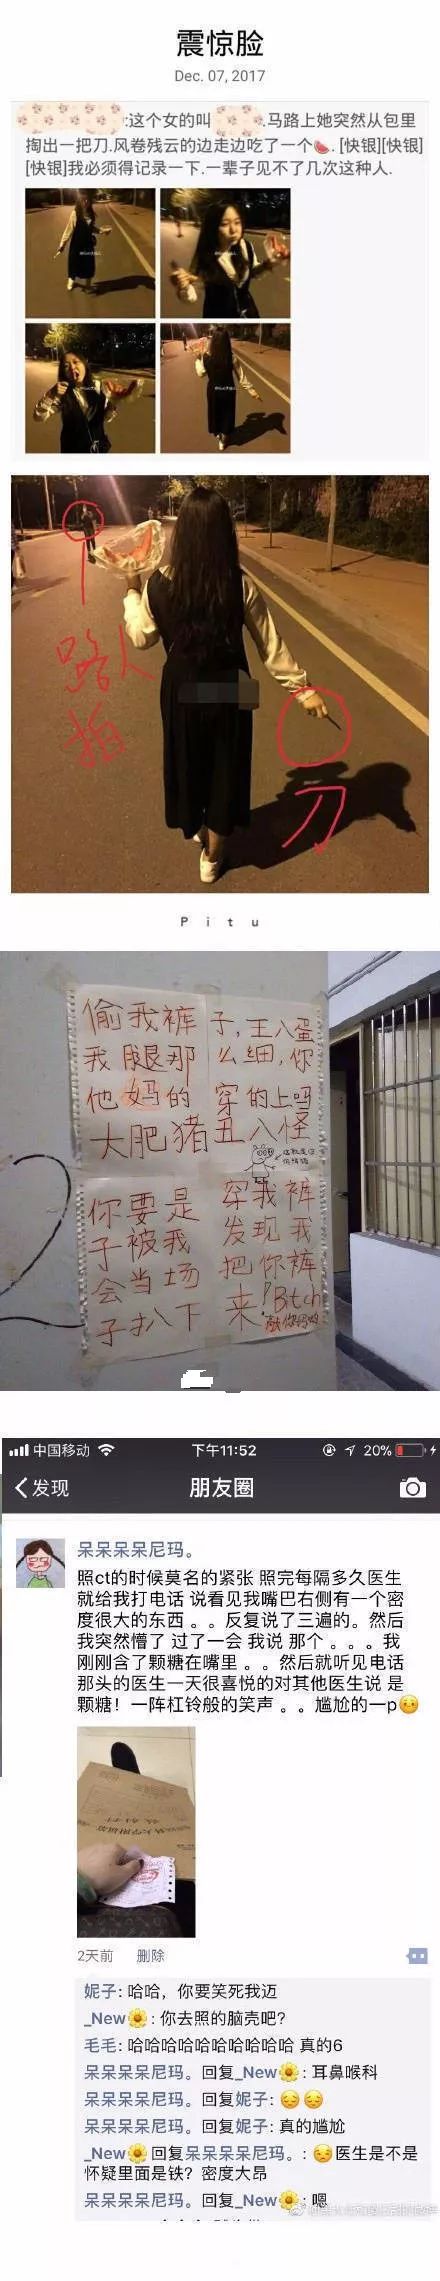 震惊脸
Dec. 07, 2017
:这个女的叫 .马路上她突然从包里
掏出一把刀.风卷残云的边走边吃了一个🍉. [快银][快银]
[快银]我必须得记录一下.一辈子见不了几次这种人.
路人
拍
刀
Pitu
偷我裤子,王八蛋
我腿那么细,你
他妈的穿的上吗
大肥猪丑八怪
你要是穿我裤
子被我发现我
会当场把你裤
子扒下来!Bitch
中国移动 下午11:52 20%
发现 朋友圈
呆呆呆呆尼玛。
照ct的时候莫名的紧张 照完每隔多久医生
就给我打电话 说看见我嘴巴右侧有一个密
度很大的东西 。。反复说了三遍的。然后
我突然懂了 过了一会 我说 那个 。。。我
刚刚含了颗糖在嘴里 。。然后就听见电话
那头的医生一天很喜悦的对其他医生说 是
颗糖！一阵杠铃般的笑声 。。尴尬的一p😔
2天前 删除
妮子: 哈哈，你要笑死我迈
_New🌼: 你去照的脑壳吧?
毛毛: 哈哈哈哈哈哈哈哈哈哈 真的6
呆呆呆呆尼玛。回复_New🌼: 耳鼻喉科
呆呆呆呆尼玛。回复妮子: 😔😔
呆呆呆呆尼玛。回复妮子: 真的尴尬
_New🌼回复呆呆呆呆尼玛。: 😔医生是不是
怀疑里面是铁？密度大昂
呆呆呆呆尼玛。回复_New🌼: 嗯